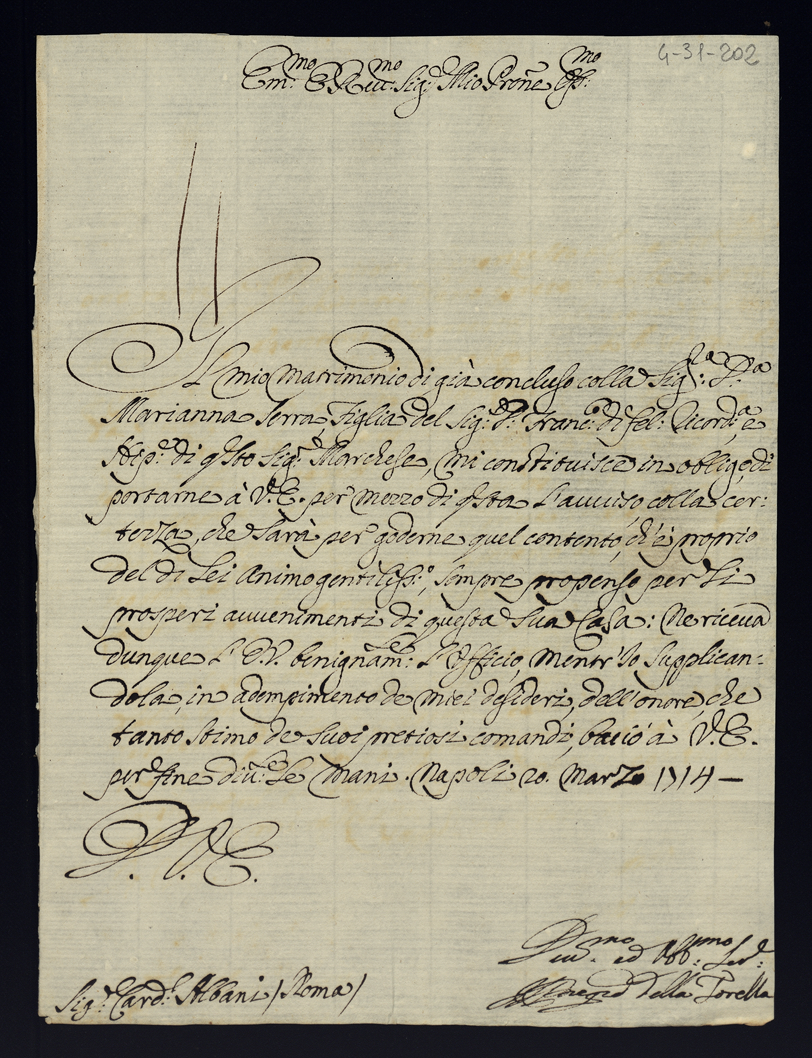 4-31-202
Em.mo e Rev.mo Sig.r Mio Prone Oss.mo
Il mio Matrimonio di già concluso colla Sig.ra D.a
Marianna Serra, Figlia del Sig.r D. Franc.o di fel: ricord.a, e
Nip.e di q'sto Sig.r Marchese, mi constituisce in obligo di
portarne à V.E. per mezzo di q'sta l'avviso, colla cer:
tezza, che sarà per goderne quel contento, ch'è proprio
del di Lei Animo gentiliss.o, sempre propenso per li
prosperi avvenimenti di questa sua Casa: Ne riceva
dunque l'E.V. benignam.te: l'Officio, mentr'Io supplican:
dola, in adempimento de miei desiderj, dell'onore, che
tanto stimo de suoi pretiosi comandi, bacio à V.E.
per fine div.te le mani. Napoli 20. Marzo 1714 —
D. V. E.
Div.mo ed Obb.mo Ser.e
della Torella
Sig.r Card.l Albani / Roma /